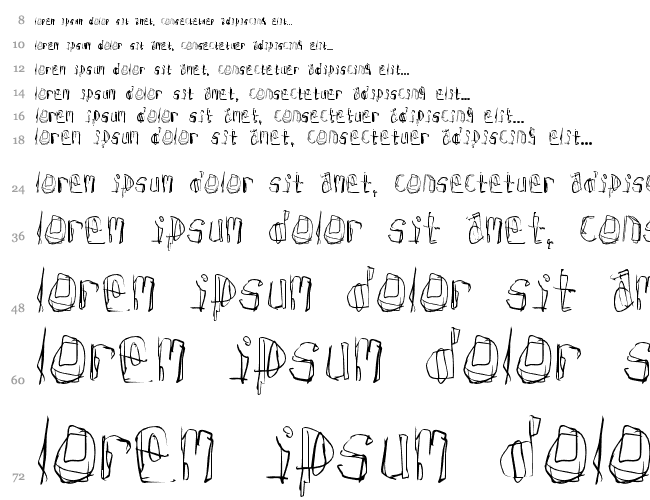 8 lorem ipsum dolor sit amet, consectetuer adipiscing elit...
10 lorem ipsum dolor sit amet, consectetuer adipiscing elit...
12 lorem ipsum dolor sit amet, consectetuer adipiscing elit...
14 lorem ipsum dolor sit amet, consectetuer adipiscing elit...
16 lorem ipsum dolor sit amet, consectetuer adipiscing elit...
18 lorem ipsum dolor sit amet, consectetuer adipiscing elit...
24 lorem ipsum dolor sit amet, consectetuer adipisc
36 lorem ipsum dolor sit amet, cons
48 lorem ipsum dolor sit am
60 lorem ipsum dolor s
72 lorem ipsum dolo